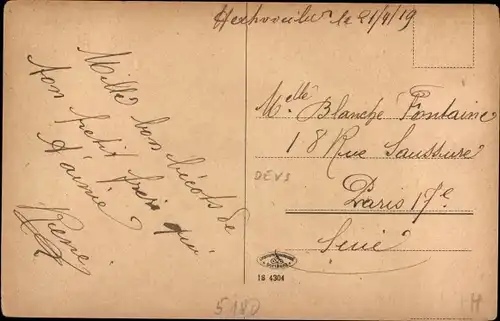 le 21/4/19
Mille bon bécots de
ton petit frère qui
t'aime
René
Melle Blanche Fontaine
18 Rue Saussure
Paris 17e
Seine
DEVS
18 4304
5180
H